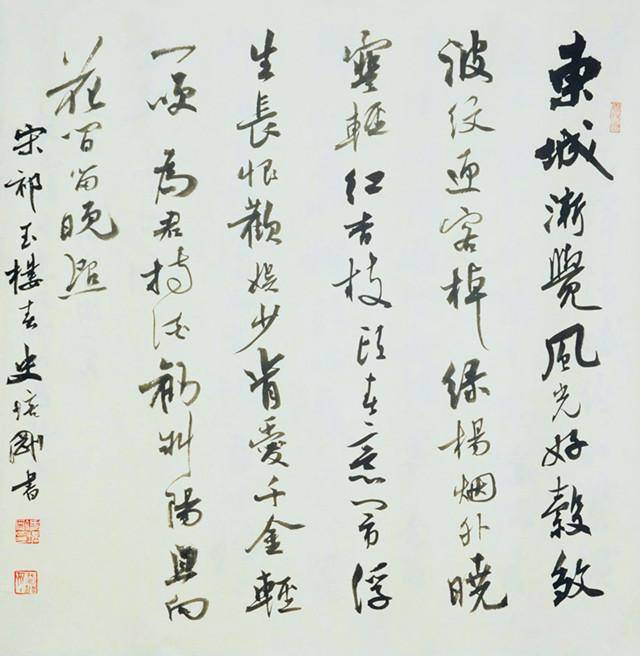 東城漸覺風光好縠皺
波紋迎客棹綠楊烟外曉
寒輕紅杏枝頭春意鬧浮
生長恨歡娛少肯愛千金輕
一笑為君持酒勸斜陽且向
花間留晚照
宋祁玉樓春史培剛書